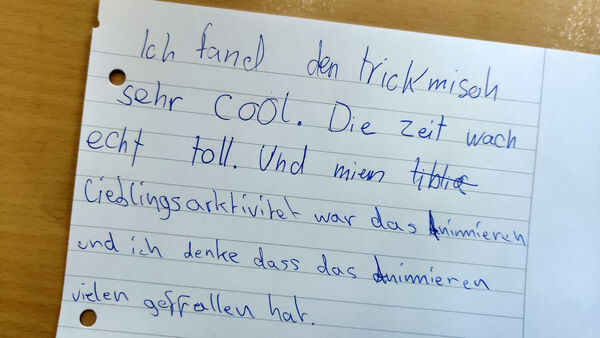 Ich fand den trickmisch
sehr cool. Die zeit wach
echt toll. Und mien
Lieblingsarktivitet war das Animmieren
und ich denke dass das Animmieren
vielen geffallen hat.